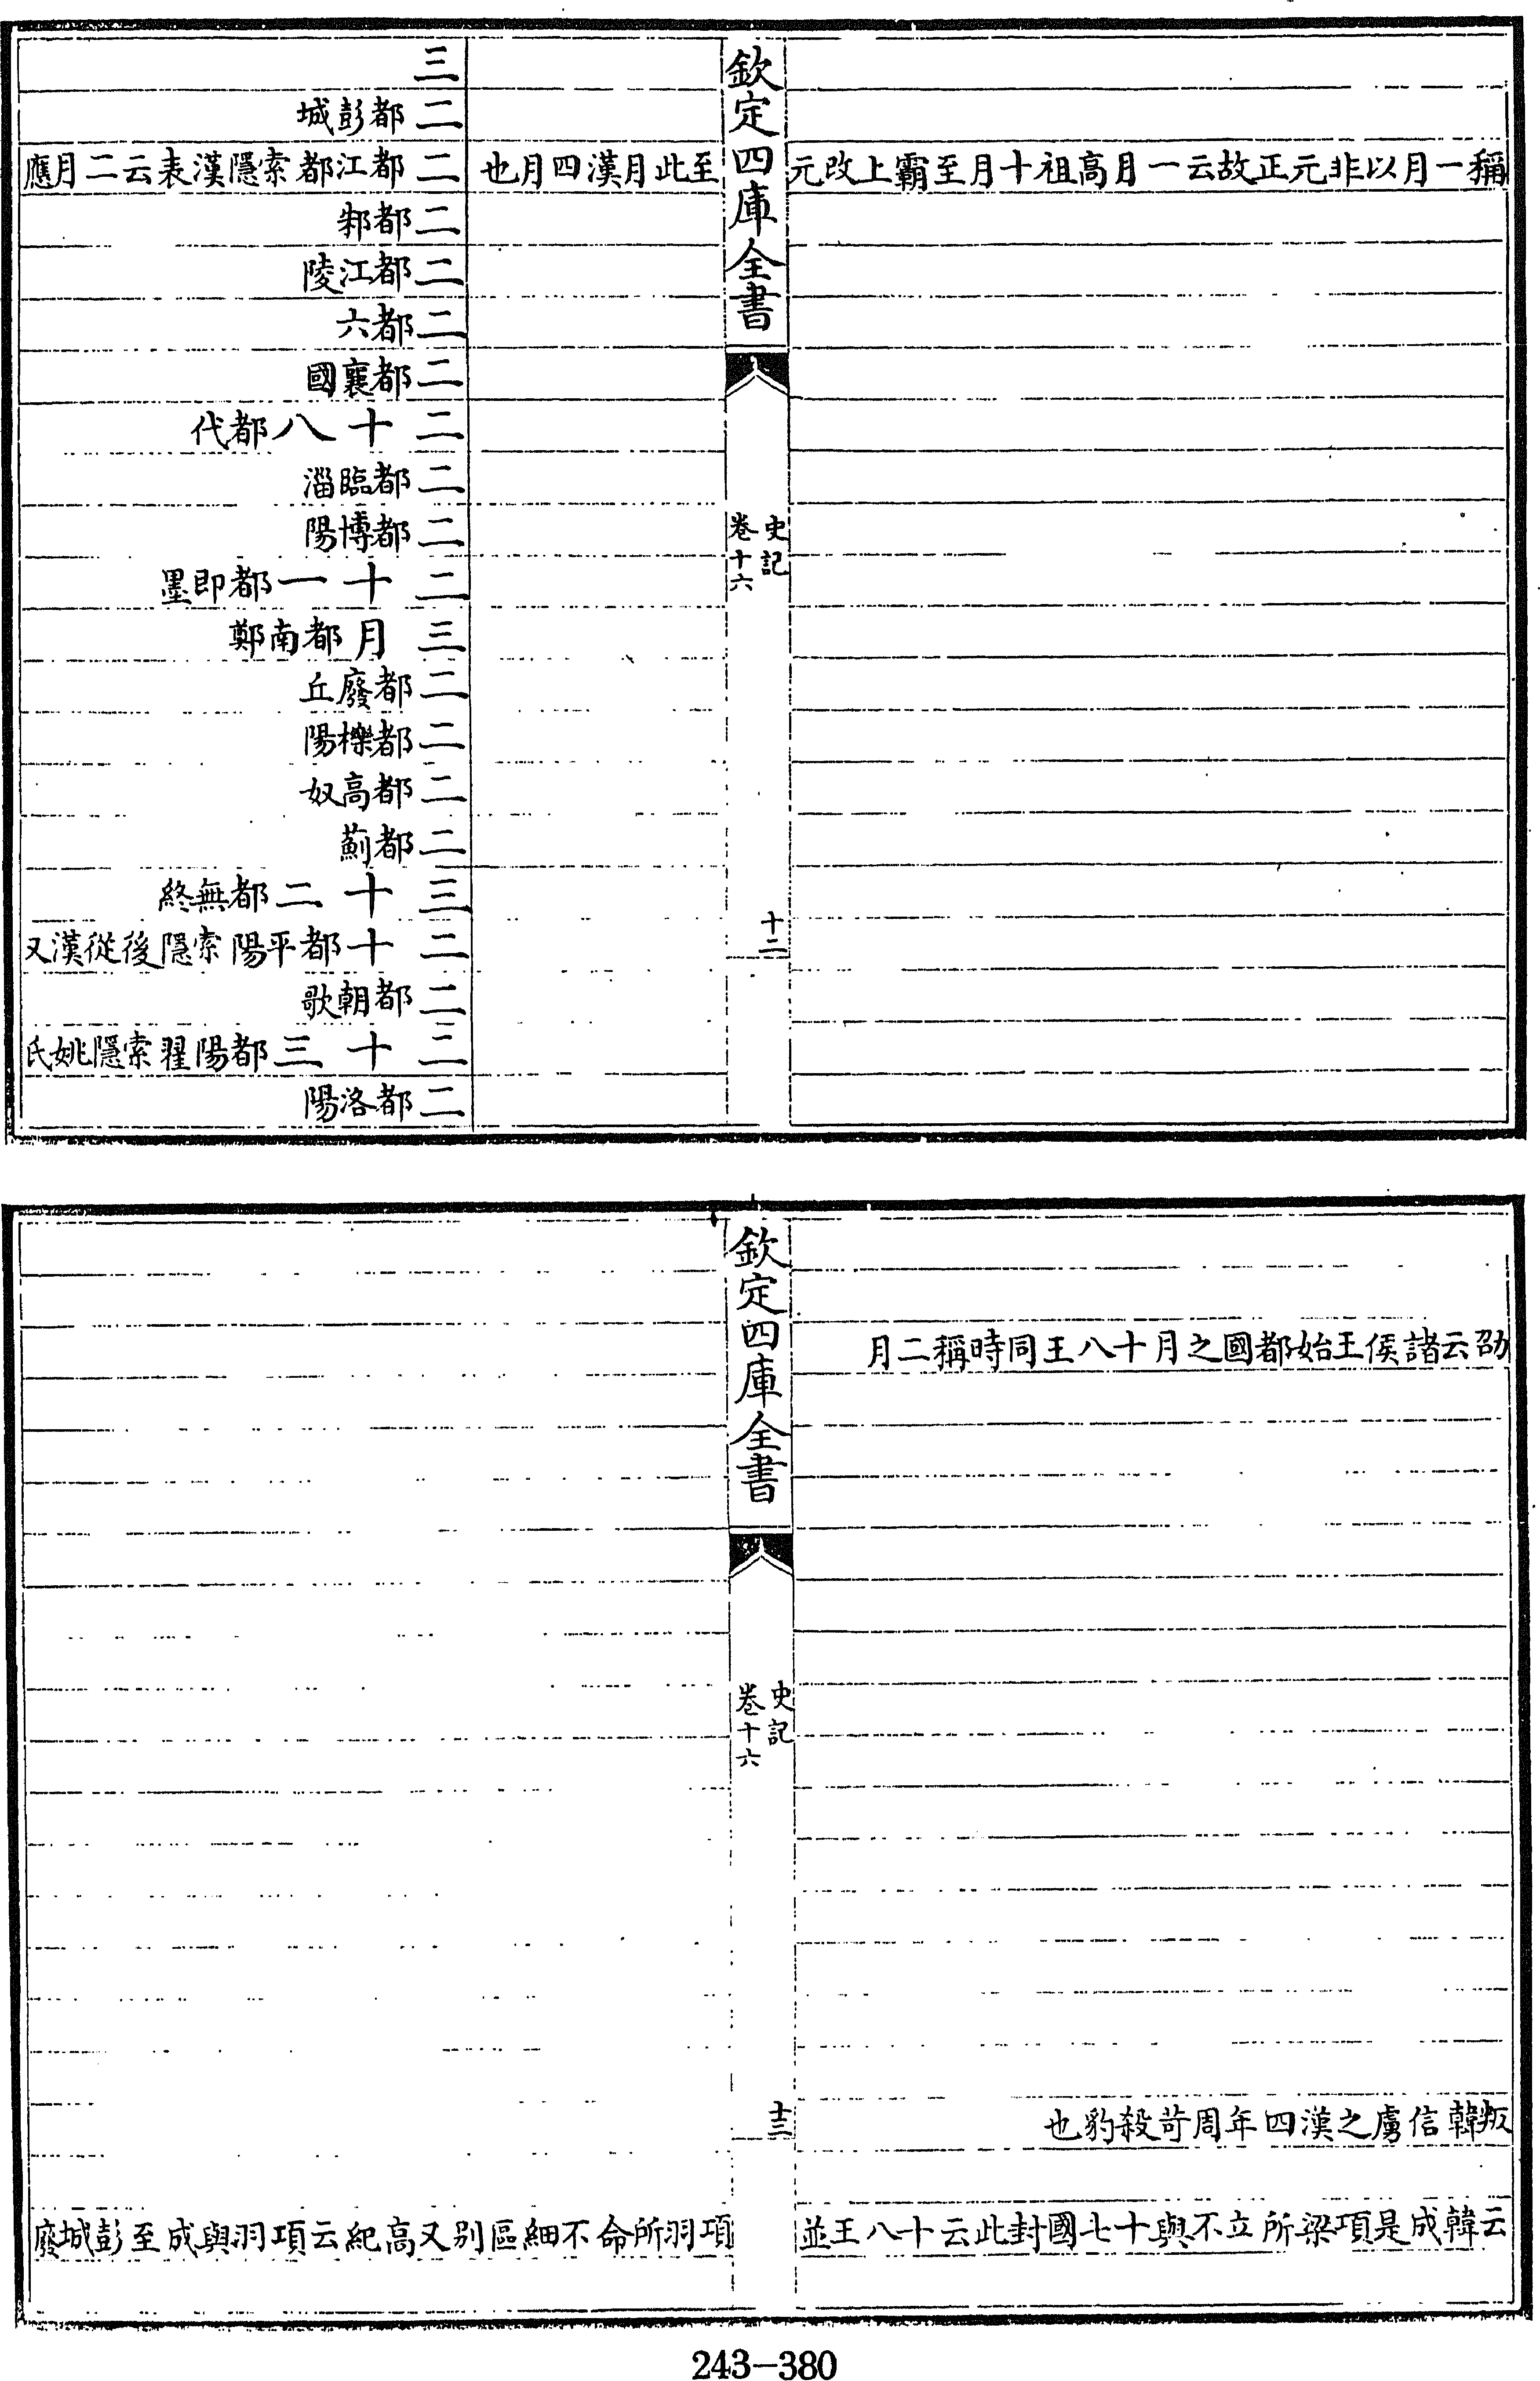 稱一月以非元正故云一月高祖十月至霸上改元
欽定四庫全書
史記
卷十六
十二
至此月漢四月也
三
二都彭城
二都江都索隱漢表云二月應
二都邾
二都江陵
二都六
二都襄國
二十八都代
二都臨淄
二都博陽
二十一都即墨
三月都南鄭
二都廢丘
二都櫟陽
二都高奴
二都薊
三十二都無終
二十都平陽索隱後從漢又
二都朝歌
二十三都陽翟索隱姚氏
二都洛陽
劭云諸侯王始都國之月十八王同時稱二月
叛韓信虜之漢四年周苛殺豹也
云韓成是項梁所立不與十七國封此云十八王並
欽定四庫全書
史記
卷十六
十三
項羽所命不細區別又高紀云項羽與成至彭城廢
243-380